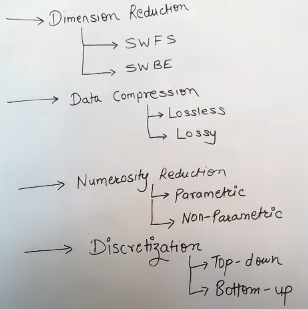 Dimension Reduction
SWFS
SWBE
Data Compression
Lossless
Lossy
Numerosity Reduction
Parametric
Non-Parametric
Discretization
Top-down
Bottom-up